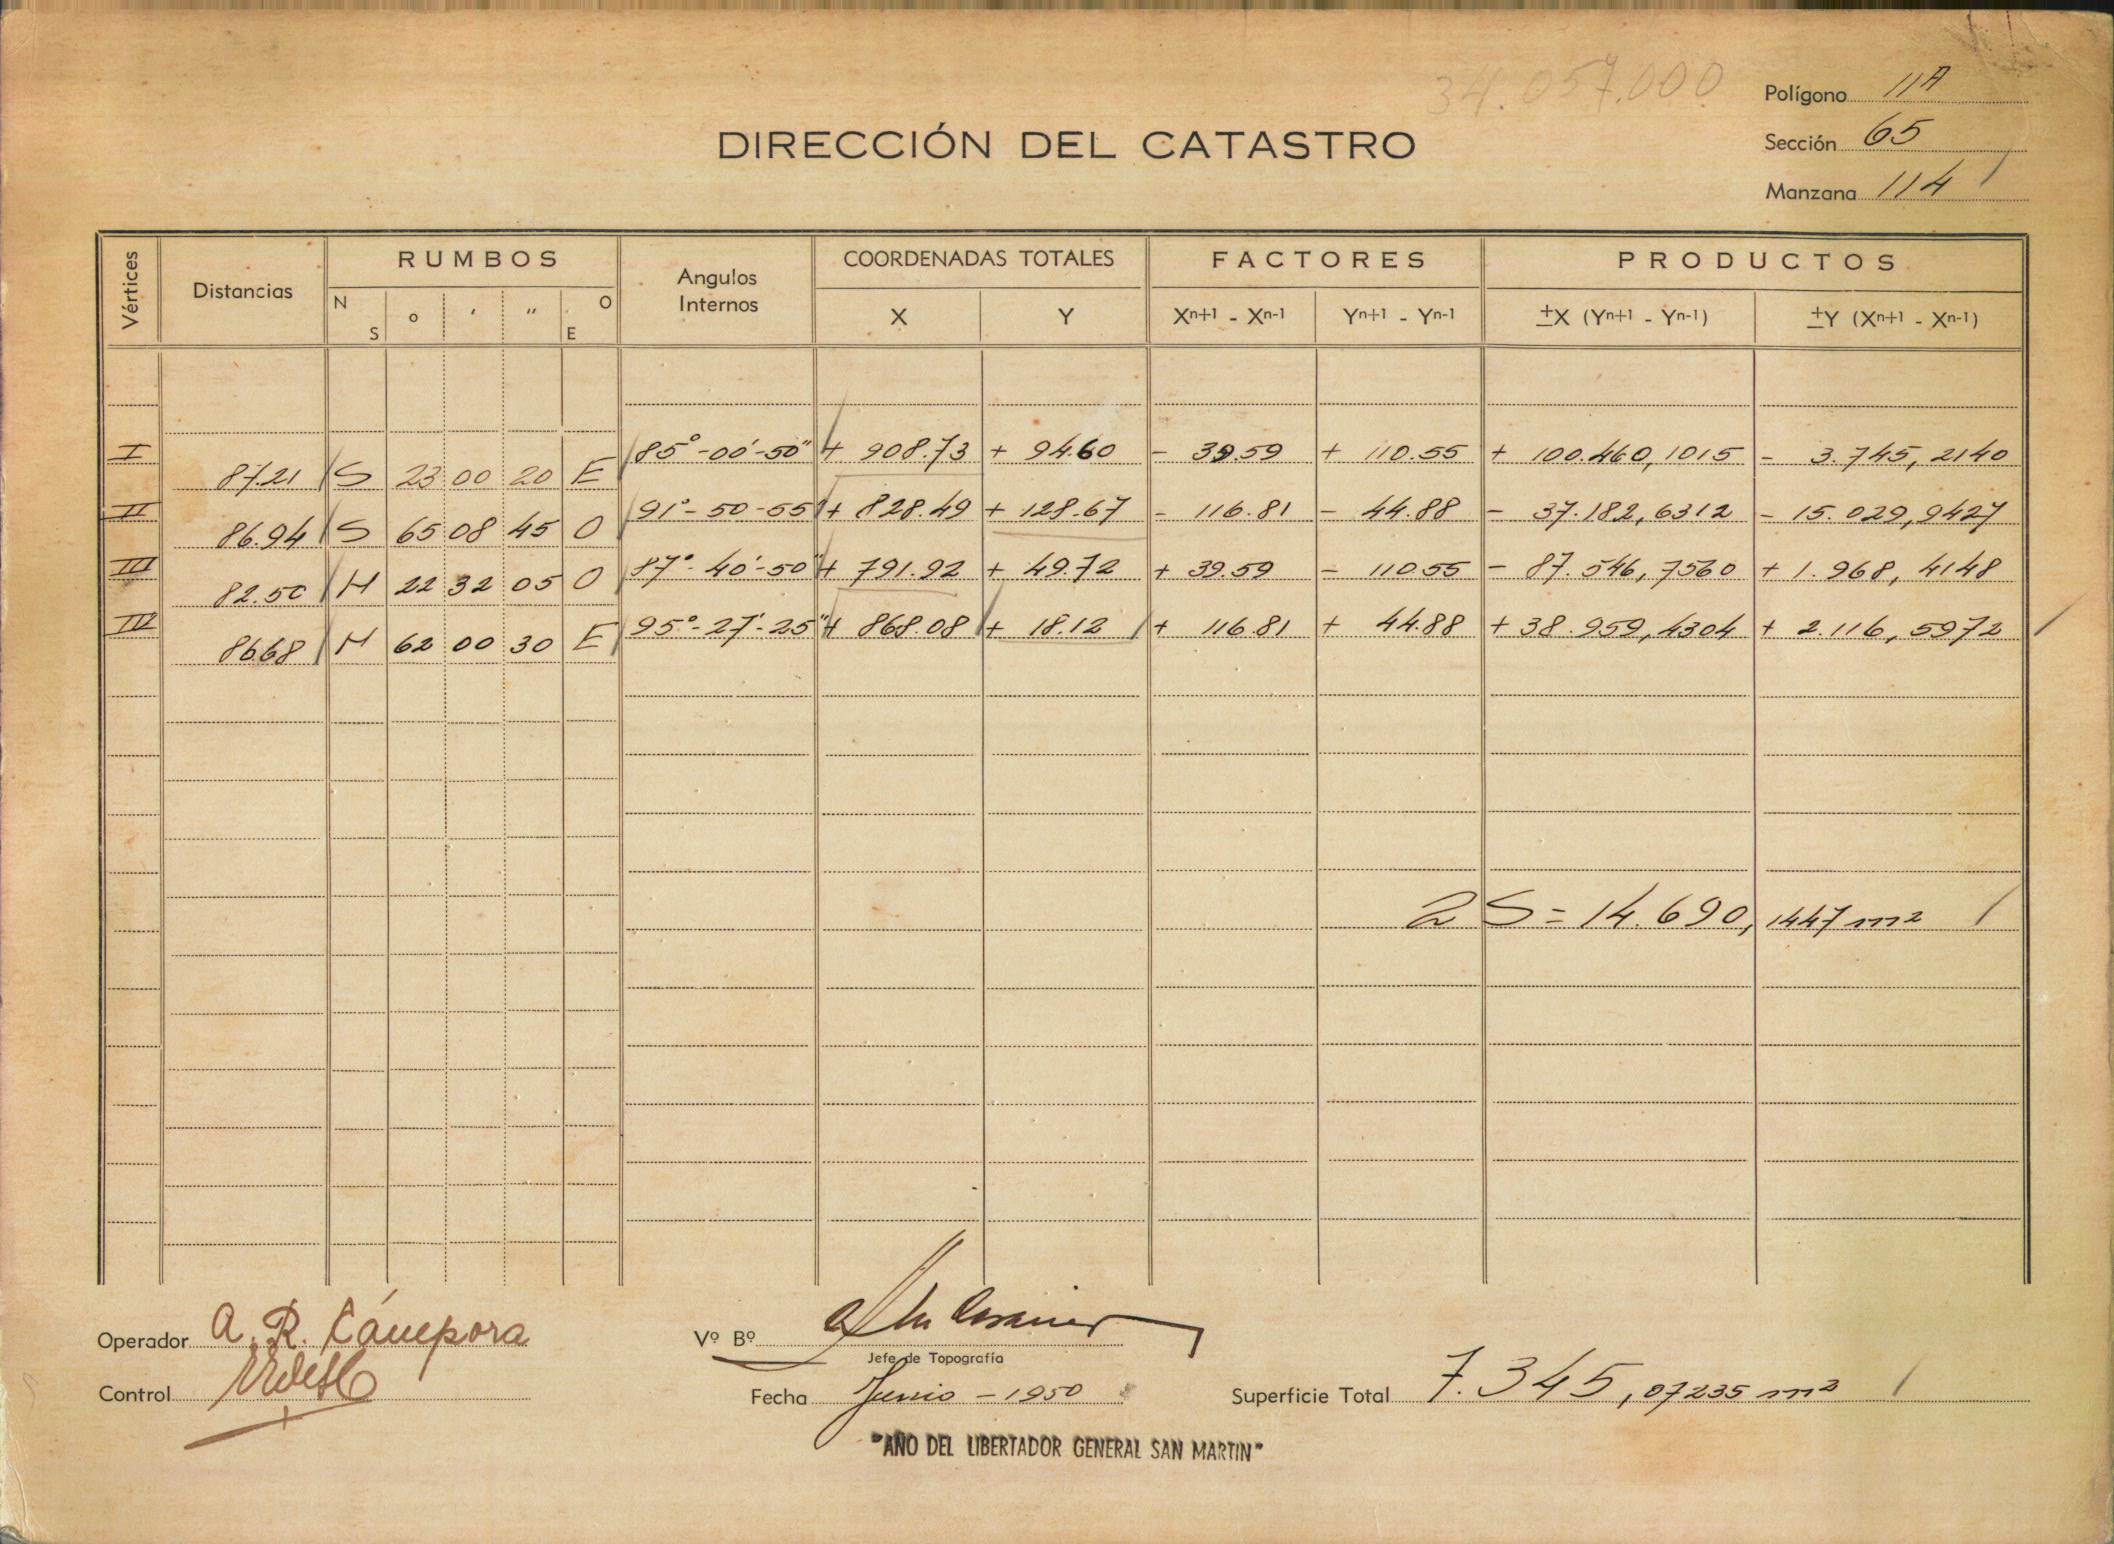 34.057.000
Polígono 11A
DIRECCIÓN DEL CATASTRO
Sección 65
Manzana 114
Vértices Distancias RUMBOS Angulos Internos COORDENADAS TOTALES FACTORES PRODUCTOS
N S o ' " O E X Y Xn+1 - Xn-1 Yn+1 - Yn-1 ±X (Yn+1 - Yn-1) ±Y (Xn+1 - Xn-1)
I 85°-00'-50" + 908.73 + 94.60 - 39.59 + 110.55 + 100.460,1015 - 3.745,2140
87.21 S 23 00 20 E
II 91°-50-55" + 828.49 + 128.67 - 116.81 - 44.88 - 37.182,6312 - 15.029,9427
86.94 S 65 08 45 O
III 87°-40'-50" + 791.92 + 49.72 + 39.59 - 110.55 - 87.546,7560 + 1.968,4148
82.50 N 22 32 05 O
IV 95°-27'-25" + 868.08 + 18.12 + 116.81 + 44.88 + 38.959,4304 + 2.116,5972
86.68 N 62 00 30 E
2 S = 14.690,1447 m2
Operador A. R. Cámpora
Vº Bº
Jefe de Topografía
Control
Fecha Junio - 1950
Superficie Total 7.345,07235 m2
"AÑO DEL LIBERTADOR GENERAL SAN MARTIN"